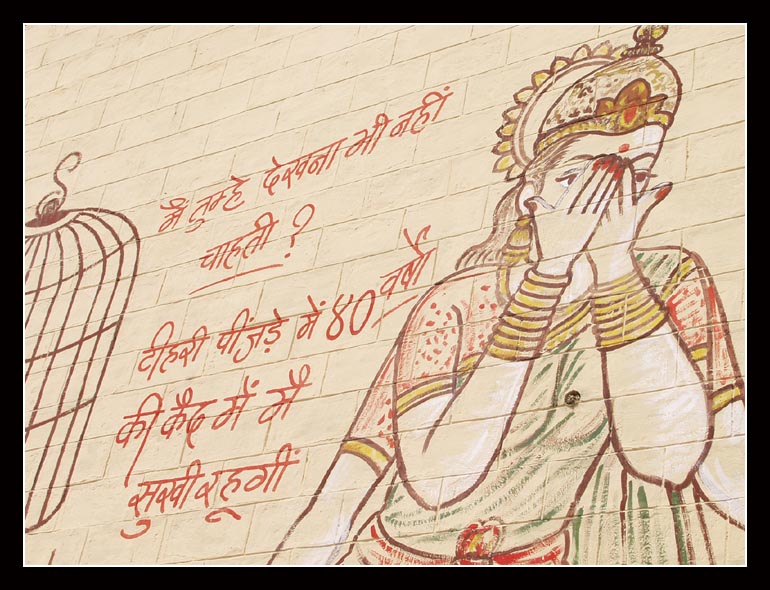 मैं तुम्हे देखना भी नहीं
चाहती ?
टीहरी पींजड़े में ४० वर्षो
की कैद में मै
सुखी रहूगीं